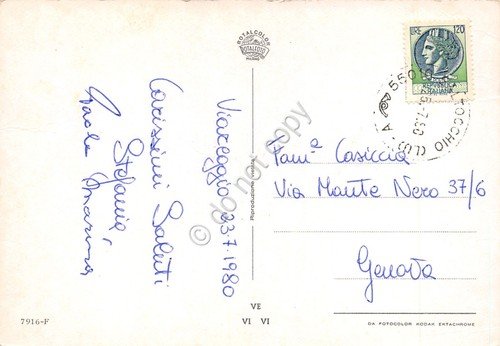 ROTALCOLOR
ROTALFOTO
MILANO
Viareggio 23.7.1980
Carissimi Saluti
Stefania
Paola Marina
Riproduzione vietata
VE
VI VI
7916-F
LIRE 120
REPUBBLICA
ITALIANA
55010
(LUCCA)
Fam.ª Casiccia
Via Monte Nero 37/6
Genova
DA FOTOCOLOR KODAK EKTACHROME
© do not copy